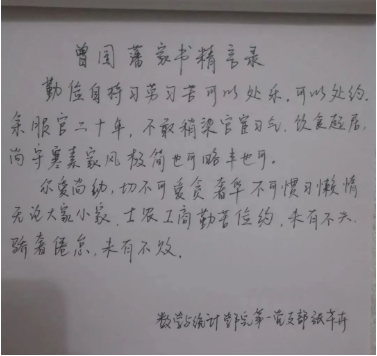 曾国藩家书精言录
勤俭自持习劳习苦可以处乐,可以处约.
余服官二十年,不敢稍染官宦习气,饮食起居,
尚守寒素家风极简也可略丰也可.
尔辈尚幼,切不可爱贪奢华不可惯习懒惰
无论大家小家、士农工商勤苦俭约,未有不兴
骄奢倦怠,未有不败.
数学与统计学院第一党支部张